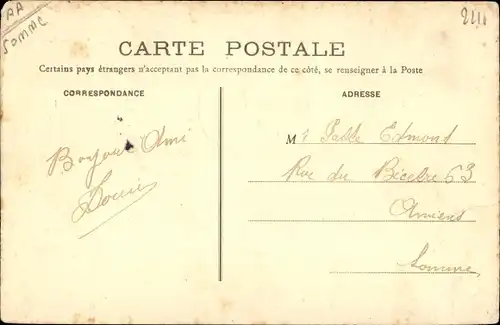 AA
SOMME
CARTE POSTALE
Certains pays étrangers n'acceptant pas la correspondance de ce côté, se renseigner à la Poste
CORRESPONDANCE
ADRESSE
Bojour Ami
Louis
Mr Edmond
Rue du Bicetre 63
Amiens
Somme